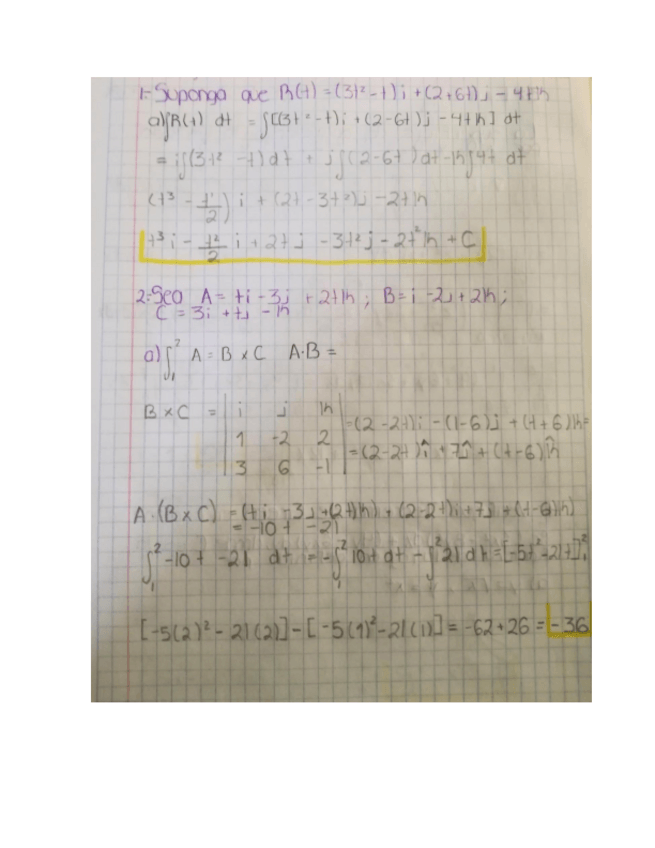 1.- Suponga que R(t) = (3t² - t) i + (2+6t) j - 4tk
a) ∫R(t) dt = ∫[(3t² - t) i + (2-6t) j - 4tk] dt
= i∫(3t² - t) dt + j∫(2-6t) dt - k∫4t dt
(t³ - t²/2) i + (2t - 3t²) j - 2tk
t³ i - t²/2 i + 2t j - 3t² j - 2t² k + C
2.- Sea A = ti - 3j + 2tk ; B = i - 2j + 2k ;
C = 3i + tj - k
a) ∫₁² A = B x C A·B =
B x C = | i j k | = (2 - 2t) i - (1-6) j + (t + 6) k =
| 1 -2 2 | = (2-2t) î + 7ĵ + (t-6) k̂
| 3 6 -1 |
A·(B x C) = (ti - 3j + (2t)k) + (2-2t) i + 7j + (t-6)k)
= -10t -21
∫₁² -10t -21 dt = -∫₁² 10t dt - ∫₁² 21 dt = [-5t² - 21t]₁²
[-5(2)² - 21(2)] - [-5(1)² - 21(1)] = -62 + 26 = -36